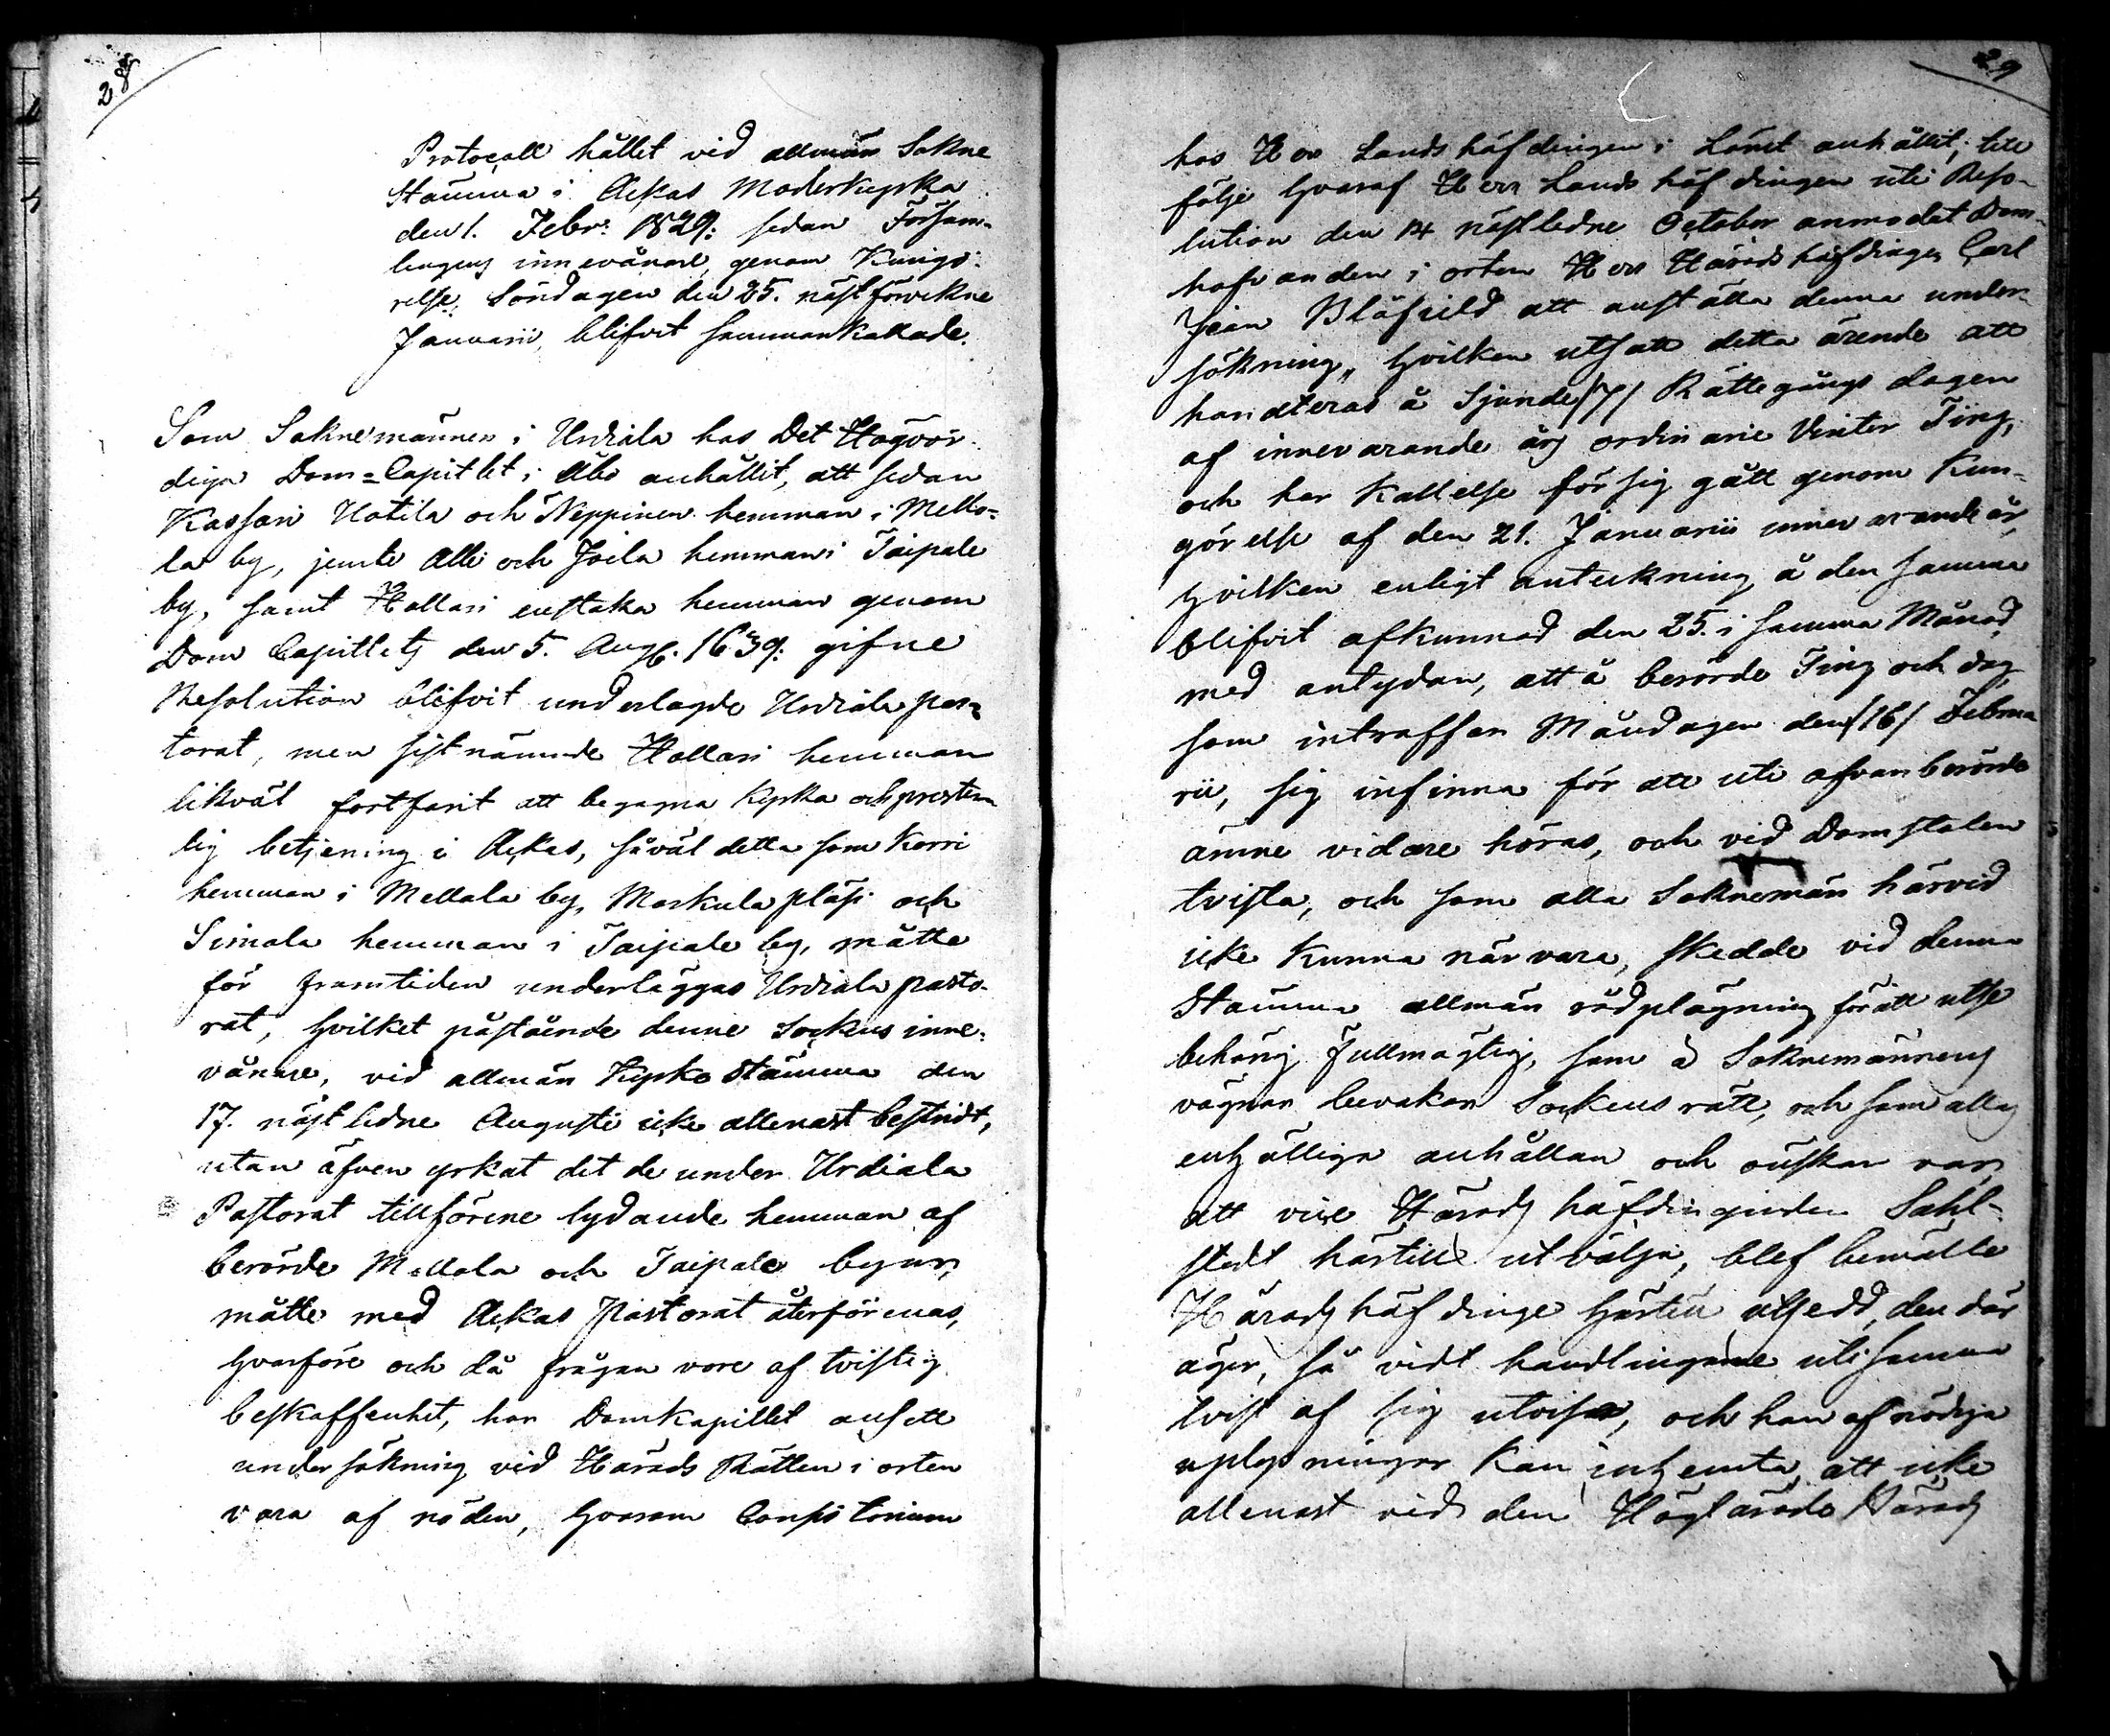 28
Protocoll hållet vid allmän Sokne
Stämma i Ackas Moderkyrka
den 1. Febr: 1829: sedan Försam-
lingens innevånare, genom Kungö-
relse, Söndagen den 25. nästförvekne
Januarii, blifvit sammankallade.
Som Soknemännen i Urdiala hos Det Högvör-
diga Dom=Capitlet i Åbo anhållit, att sedan
Kassari Uotila och Neppinen hemman i Mello-
la by, jemte Alli och Joila hemman i Taipale
by, samt Hallari enstaka hemman genom
Dom Capitlets den 5. Aug. 1639: gifne
Resolution blifvit underlagde Urdiala pas-
torat, men sistnämnde Hallari hemman
likväl fortfarit att begagna kyrka och prester-
lig betjening i Ackas, såväl detta som Korri
hemman i Mellola by, Maskula pläsi och
Simola hemman i Taipale by, måtte
för framtiden underläggas Urdiala pasto-
rat, hvilket påstående denne Sockns inne-
vånare, vid allmän Kyrko Stämma den
17. nästledne Augusti icke allenast bestridt,
utan äfven yrkat det de under Urdiala
Pastorat tillförene lydande hemman af
berörde Mellola och Taipale byar,
måtte med Ackas Pastorat återförenas,
hvarföre och då frågan vore af tvistig
beskaffenhet, har Domkapitlet ansett
undersökning vid Härads Rätten i orten
vara af nöden, hvarom Consistorium
29
hos Herr Landshöfdingen i Länet anhållit; till
följe hvaraf Herr Landshöfdingen uti Reso-
lution den 14 nästledne October anmodat Dom-
hafvanden i orten Herr Häradshöfdingen Carl
Johan Blåfield att anställa denna under-
sökning, hvilken utsatt detta ärende att
handteras å Sjunde /7/ Rättegångs dagen
af innevarande års ordinarie Vinter Ting,
och har Kallelse för sig gått genom Kun-
görelse af den 21. Januarii innevarande år,
hvilken enligt anteckning å den samma
blifvit afkunnad den 25. i samma Månad,
med antydan, att å berörde Ting och dag
som intraffar Måndagen den /16/ Februa
rii, sig infinna för att uti ofvanberörde
ämne vidare höras, och vid Domstolen
tvista, och som alla Soknemän härvid
icke kunna närvara, skedde vid denna
Stämma allmän rådplägning för att utse
behörig Fullmägtig, som å Soknemännens
vägnar bevakar Sockens rätt, och som allas
enhälliga anhållan och önskan var
att vice Häradshöfdingen Sahl-
stedt härtill utvälja, blef bemälte
Häradshöfdinge härtill utsedd, den där
äger, så vidt handlingarne uti samma
tvist af sig utvisa, och han af nödiga
uplysningar kan inhemta, att icke
allenast vid den Höglärade Härads